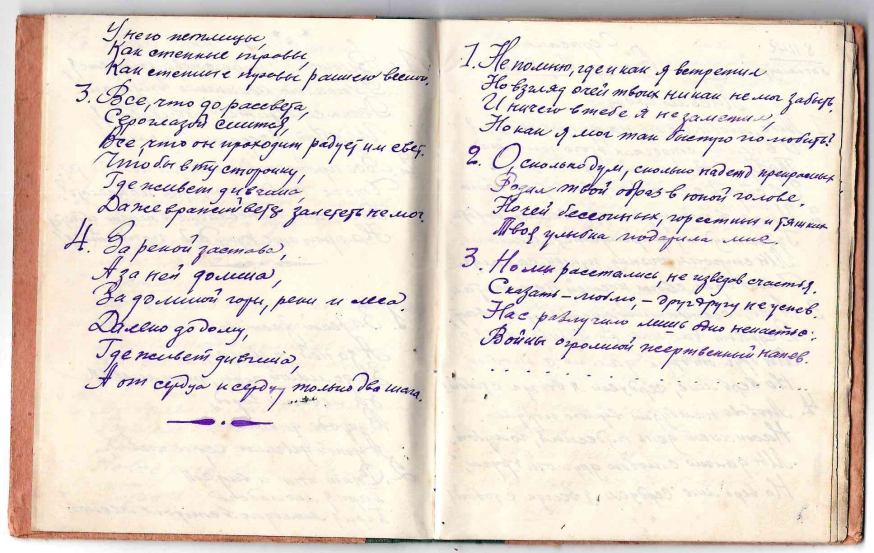 У него петлицы,
Как степные травы,
Как степные травы раннею весной.
3. Все, что до рассвета,
Сероглазой снится,
Все, что он проходит радует им свет.
Чтобы в ту сторонку,
Где живет дивчина,
Даже вражий ветер залететь не мог.
4. За рекой застава,
А за ней долина,
За долиной горы, реки и леса.
Далеко до дому,
Где живет дивчина,
А от сердца к сердцу только два шага.
1. Не помню, где и как я встретил
Но взгляд очей твоих никак не мог забыть.
И ничего в тебе я не заметил,
Но как я мог так быстро полюбить!
2. О сколько дум, сколько надежд прекрасных
Родил твой образ в юной голове.
Ночей бессонных, горестных и тяжких
Твоя улыбка подарила мне.
3. Но мы расстались, не изведав счастья.
Сказать – люблю, – друг другу не успев.
Нас разлучило лишь одно ненастье:
Войны огромной жертвенный напев.
. . . . . . . . . . . . . .